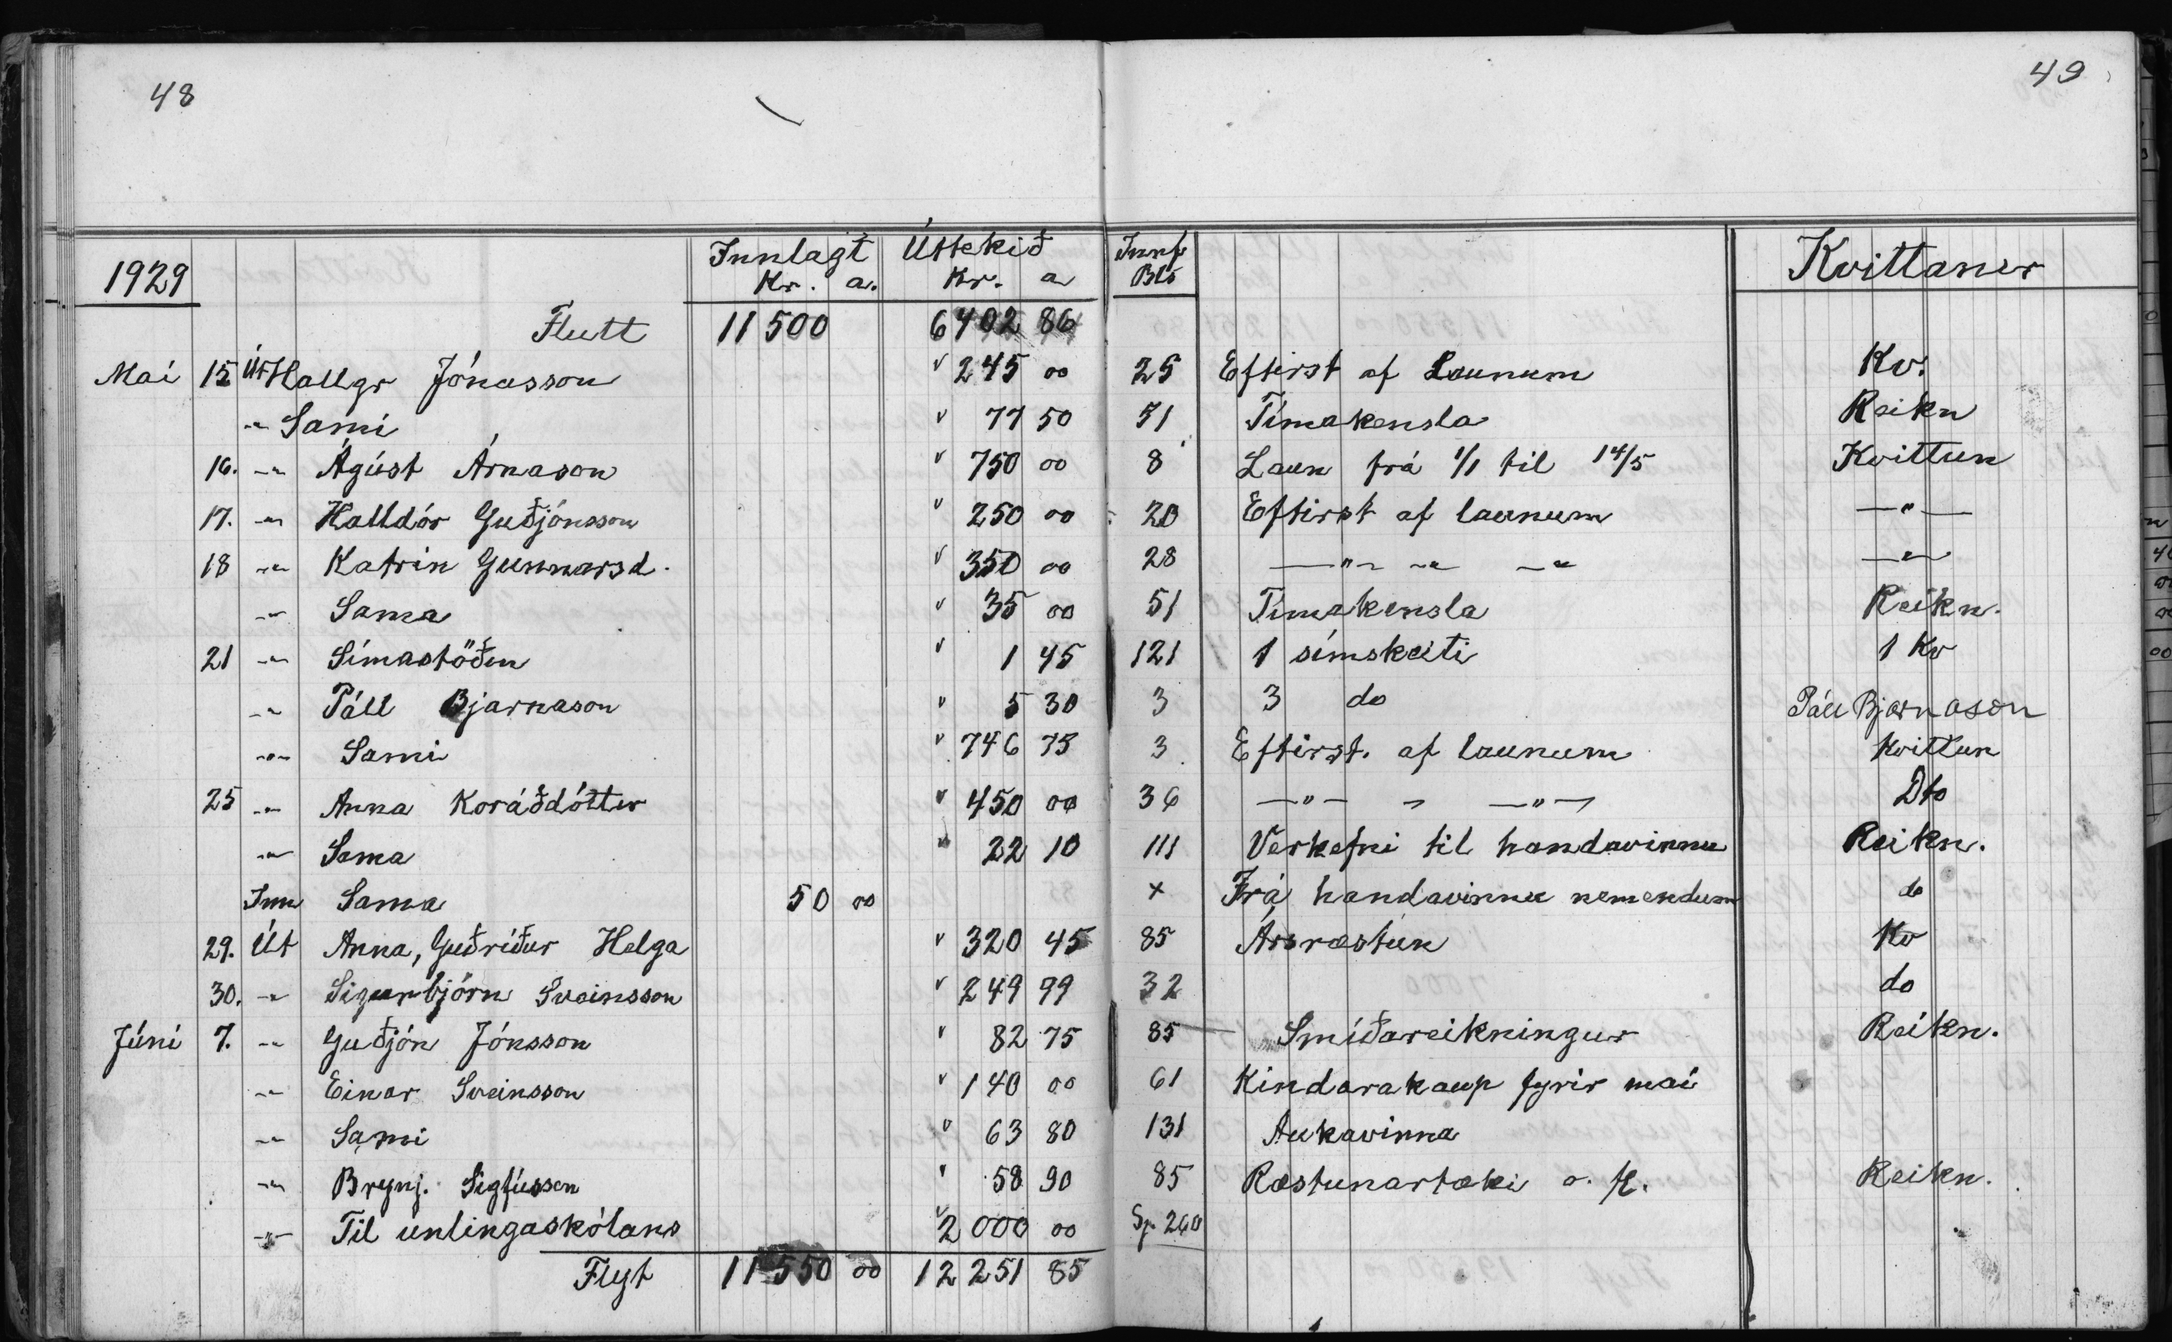 48
49
1929 Innlagt Úttekið Innf Kvittaner
Kr. a. Kr. a Bls
Flutt 11500 6402 86
Mai 15 Út Hallgr Jónasson " 245 00 25 Eftirst af Launum Kv.
-"- Sami " 77 50 51 Tímakensla Reikn
16. -"- Ágúst Árnason " 750 00 8 Laun frá 1/1 til 14/5 Kvittun
17. -"- Halldór Guðjónsson " 250 00 20 Eftirst af launum -"-
18 -"- Katrín Gunnarsd. " 350 00 28 -"- -"- -"- -"-
-"- Sama " 35 00 51 Tímakensla Reikn.
21 -"- Símastöðin " 1 45 121 1 símskeiti 1 Kv
-"- Páll Bjarnason " 5 30 3 3 do Páll Bjarnason
-"- Sami " 746 75 3 Eftirst. af launum Kvittun
25 -"- Anna Koráðdóttir " 450 00 36 -"- " -"- Dto
-"- Sama " 22 10 111 Verkefni til handavinnu Reikn.
Inn Sama 50 00 x Frá handavinnu nemendum do
29. Út Anna, Guðríður Helga " 320 45 85 Ársræstun Kv
30. -"- Sigurbjörn Sveinsson " 249 99 32 do
Júní 7. -"- Guðjón Jónsson " 82 75 85 Smíðareikningur Reikn.
-"- Einar Sveinsson " 140 00 61 Kindarakaup fyrir mai
-"- Sami " 63 80 131 Aukavinna
-"- Brynj. Sigfússon " 58 90 85 Ræstunartæki o. fl. Reikn.
-"- Til unlingaskólans " 2000 00 Sp 260
Flyt 11550 00 12251 85